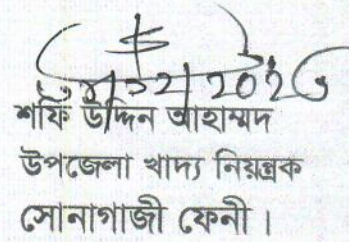 শফি উদ্দিন আহাম্মদ
উপজেলা খাদ্য নিয়ন্ত্রক
সোনাগাজী ফেনী।